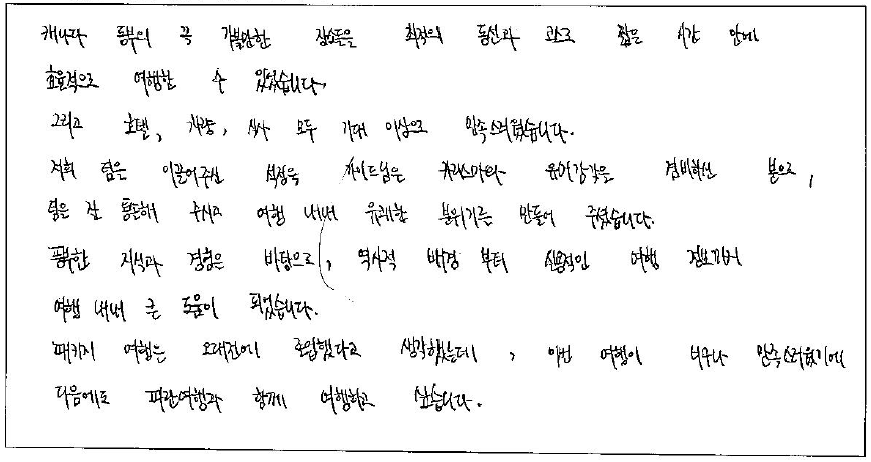 캐나다 동부의 꼭 가볼만한 장소들을 최적의 동선과 코스로 짧은 시간 안에
효율적으로 여행할 수 있었습니다.
그리고 호텔, 차량, 식사 모두 기대 이상으로 만족스러웠습니다.
저희 팀을 이끌어주신 가이드님은 카리스마와 유머감각을 겸비하신 분으로,
팀을 잘 통솔해 주시고 여행 내내 유쾌한 분위기를 만들어 주셨습니다.
풍부한 지식과 경험을 바탕으로, 역사적 배경 부터 실용적인 여행 정보까지
여행 내내 큰 도움이 되었습니다.
패키지 여행은 오래전에 졸업했다고 생각했는데, 이번 여행이 너무나 만족스러웠기에
다음에도 파란여행과 함께 여행하고 싶습니다.